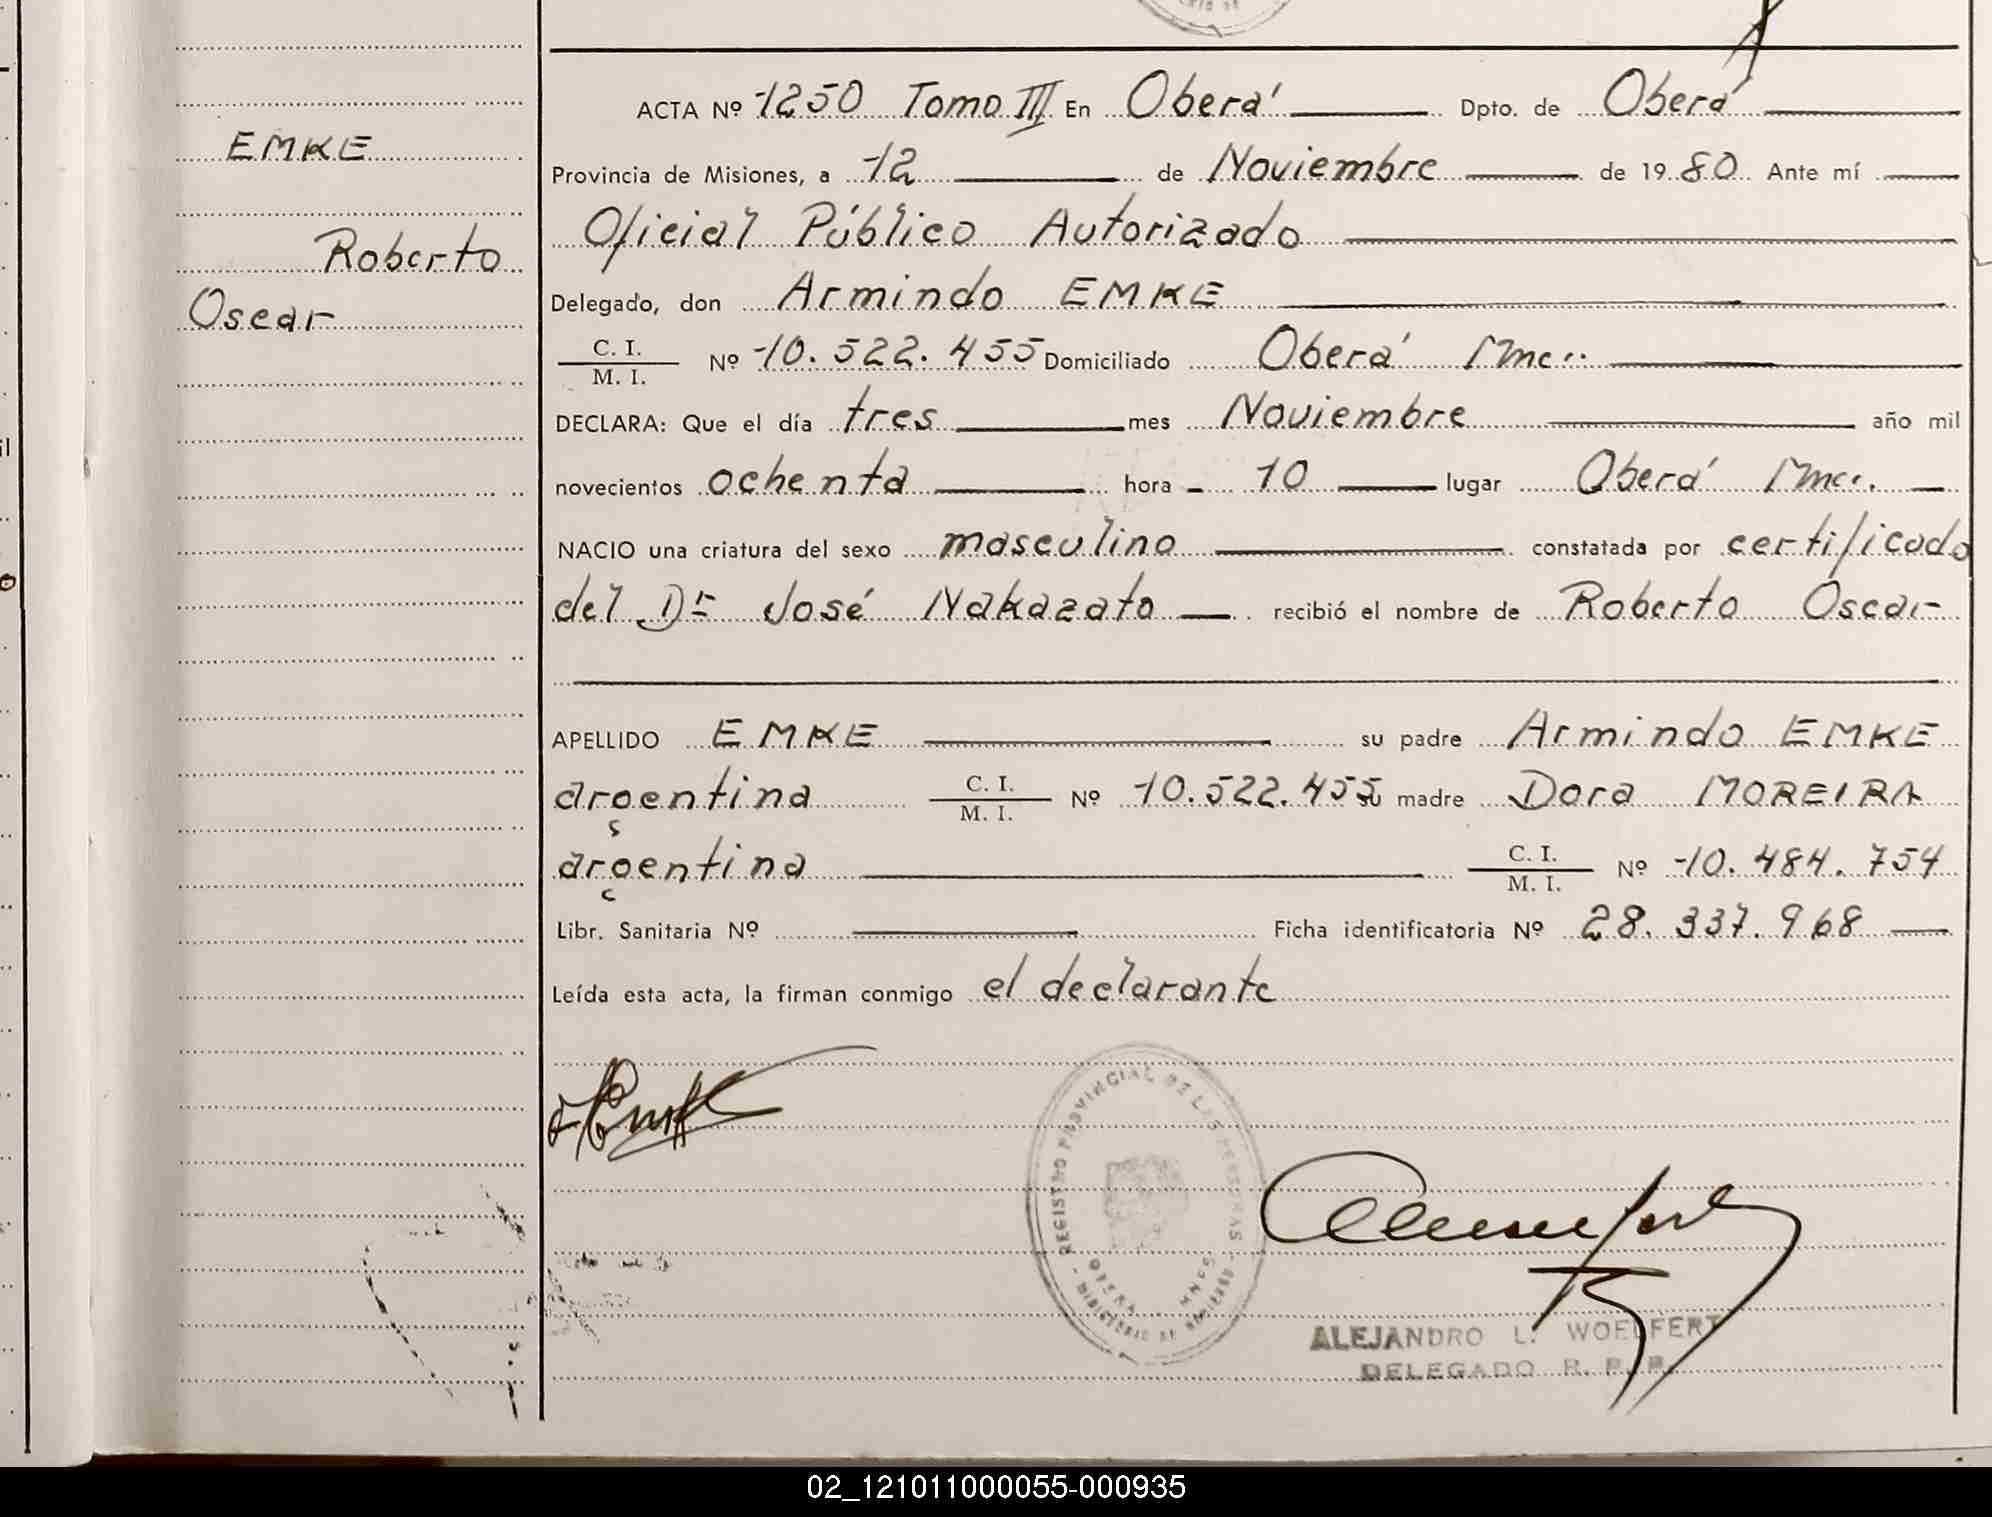 EMKE
Roberto
Oscar
ACTA Nº 1250 Tomo III En Oberá Dpto. de Oberá
Provincia de Misiones, a 12 de Noviembre de 1980 Ante mí
Oficial Público Autorizado
Delegado, don Armindo EMKE
C. I.
M. I. Nº 10.522.455 Domiciliado Oberá Mnes.
DECLARA: Que el día tres mes Noviembre año mil
novecientos ochenta hora 10 lugar Oberá Mnes.
NACIO una criatura del sexo masculino constatada por certificado
del Dr José Nakazato recibió el nombre de Roberto Oscar
APELLIDO EMKE su padre Armindo EMKE
argentina C. I. M. I. Nº 10.522.455 madre Dora MOREIRA
argentina C. I. M. I. Nº 10.484.754
Libr. Sanitaria Nº Ficha identificatoria Nº 28.337.968
Leída esta acta, la firman conmigo el declarante
REGISTRO PROVINCIAL DE LAS PERSONAS
OBERA MNES
MINISTERIO DE GOBIERNO
ALEJANDRO L. WOELFERT
DELEGADO R. P. P.
02_121011000055-000935